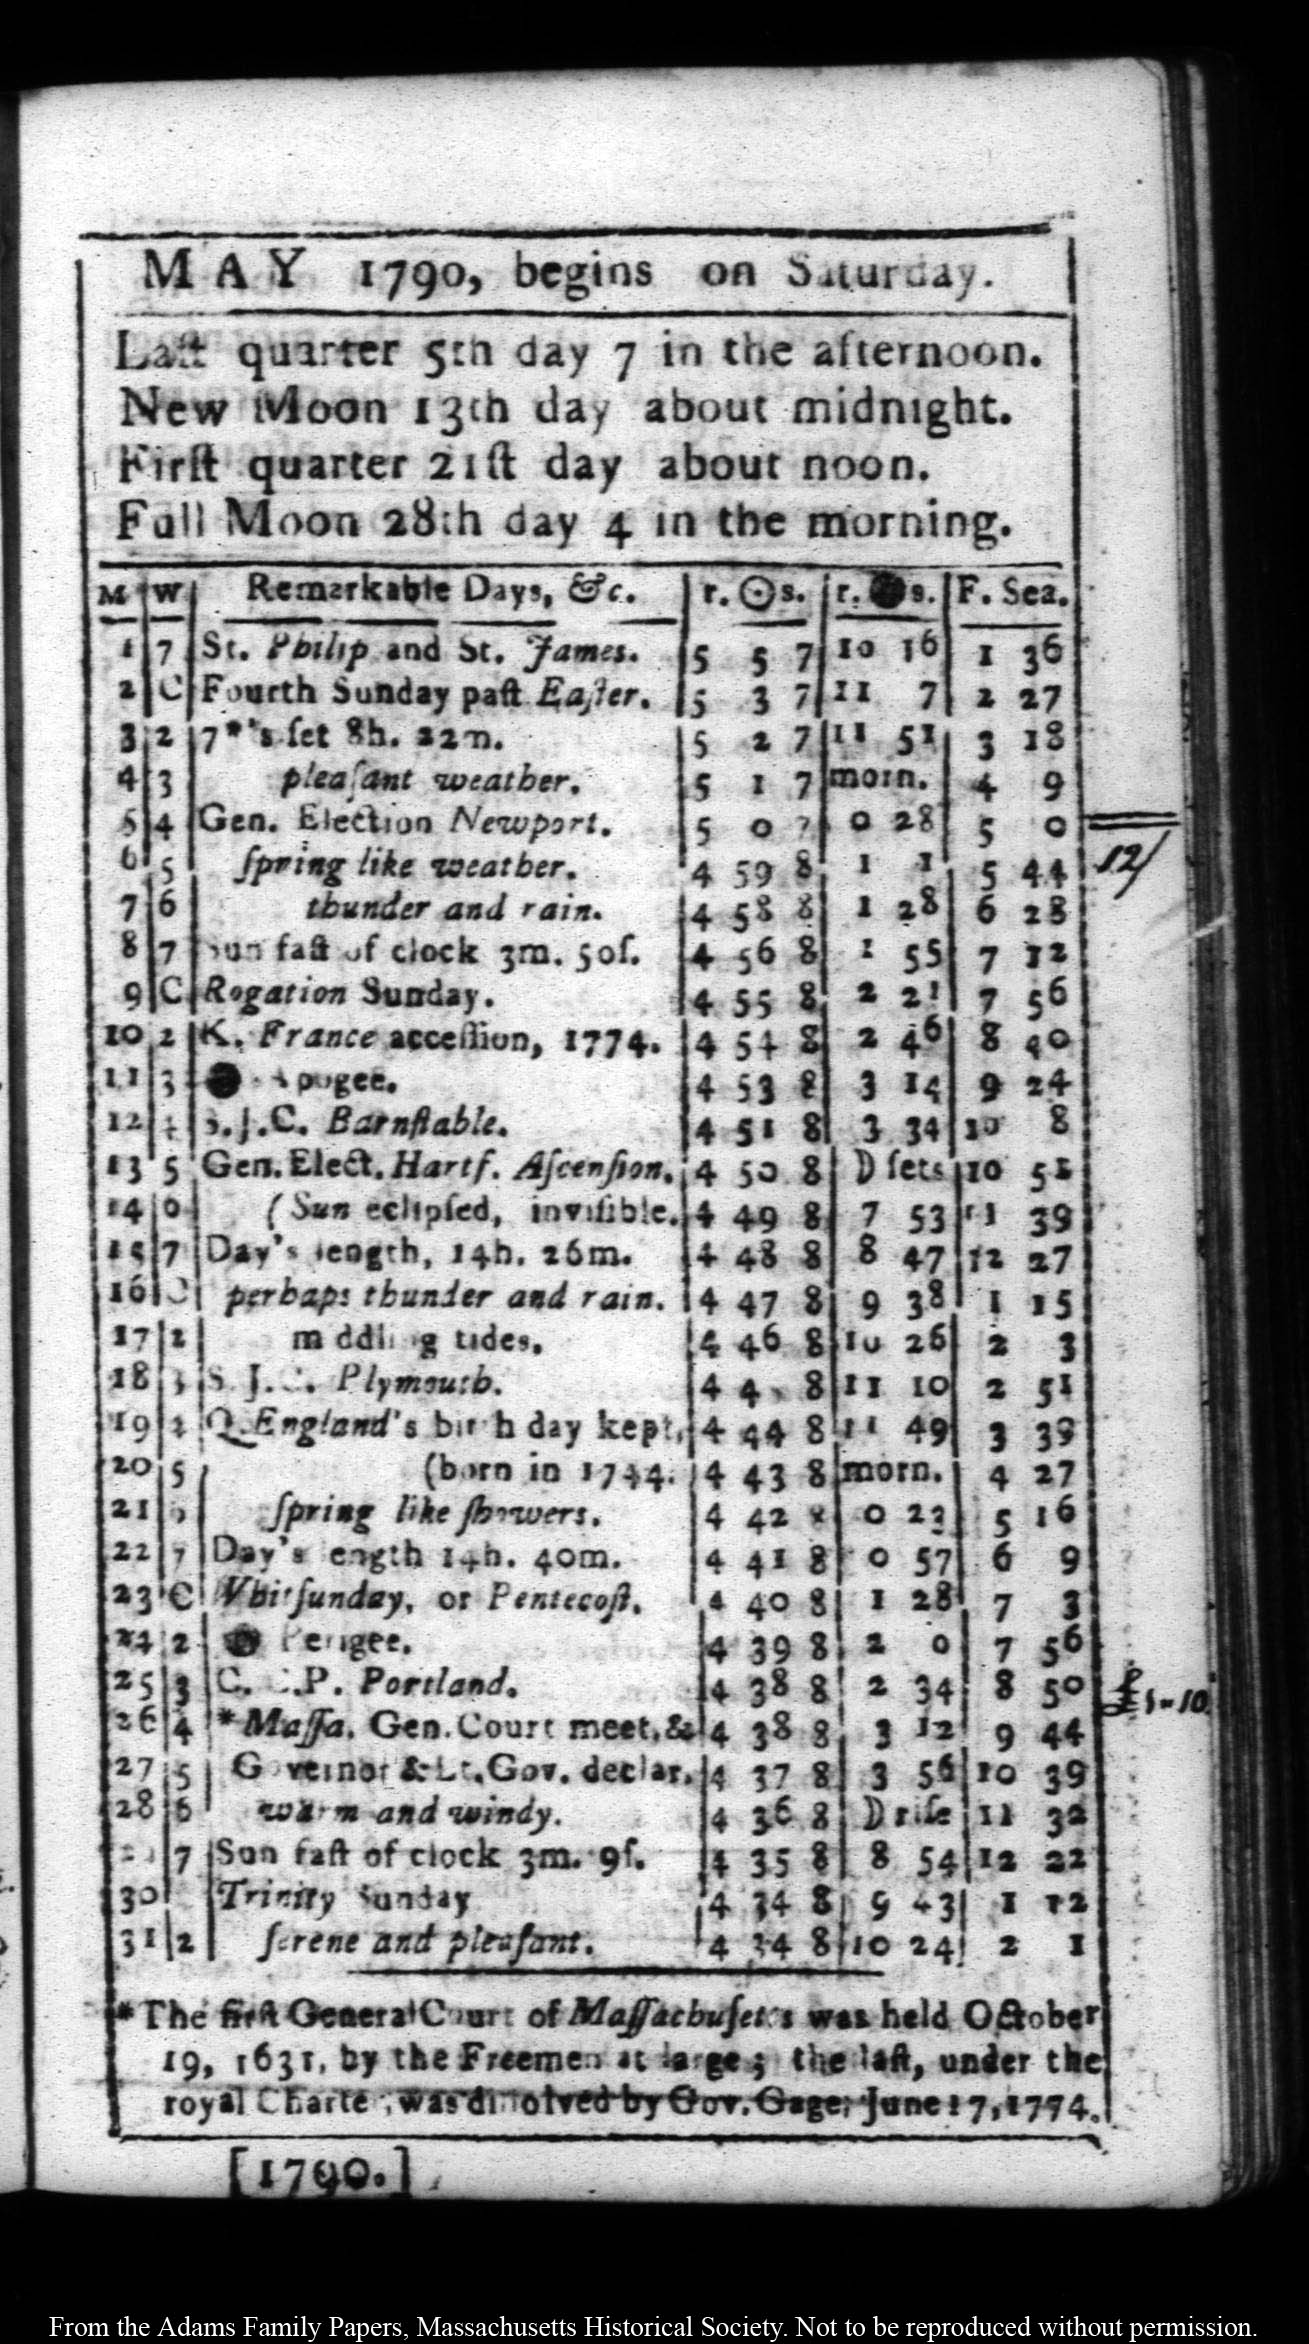 MAY 1790, begins on Saturday.
Laſt quarter 5th day 7 in the afternoon.
New Moon 13th day about midnight.
Firſt quarter 21ſt day about noon.
Full Moon 28th day 4 in the morning.
M W Remarkable Days, &c. r. ☉ s. r. ● s. F. Sea.
1 7 St. Philip and St. James. 5 5 7 10 16 1 36
2 C Fourth Sunday paſt Eaſter. 5 3 7 11 7 2 27
3 2 7*'s ſet 8h. 22m. 5 2 7 11 51 3 18
4 3 pleaſant weather. 5 1 7 morn. 4 9
5 4 Gen. Election Newport. 5 0 7 0 28 5 0
6 5 ſpring like weather. 4 59 8 1 1 5 44
12/
7 6 thunder and rain. 4 58 8 1 28 6 28
8 7 Sun faſt of clock 3m. 50ſ. 4 56 8 1 55 7 12
9 C Rogation Sunday. 4 55 8 2 21 7 56
10 2 K. France acceſſion, 1774. 4 54 8 2 46 8 40
11 3 ● Apogee. 4 53 8 3 14 9 24
12 4 S.J.C. Barnſtable. 4 51 8 3 34 10 8
13 5 Gen. Elect. Hartf. Aſcenſion. 4 50 8 D ſets 10 51
14 6 (Sun eclipſed, inviſible. 4 49 8 7 53 11 39
15 7 Day's length, 14h. 26m. 4 48 8 8 47 12 27
16 C perhaps thunder and rain. 4 47 8 9 38 1 15
17 2 middling tides. 4 46 8 10 26 2 3
18 3 S.J.C. Plymouth. 4 4 8 11 10 2 51
19 4 Q. England's birth day kept, 4 44 8 11 49 3 39
20 5 (born in 1744. 4 43 8 morn. 4 27
21 6 ſpring like ſhowers. 4 42 8 0 23 5 16
22 7 Day's length 14h. 40m. 4 41 8 0 57 6 9
23 C Whitſunday, or Pentecoſt. 4 40 8 1 28 7 3
24 2 ● Perigee. 4 39 8 2 0 7 56
25 3 C.C.P. Portland. 4 38 8 2 34 8 50
26 4 *Maſſa. Gen. Court meet, & 4 38 8 3 12 9 44
27 5 Governor & Lt. Gov. declar. 4 37 8 3 56 10 39
28 6 warm and windy. 4 36 8 D riſe 11 32
29 7 Sun faſt of clock 3m. 9ſ. 4 35 8 8 54 12 22
30 Trinity Sunday 4 34 8 9 43 1 12
31 2 ſerene and pleaſant. 4 34 8 10 24 2 1
*The firſt General Court of Maſſachuſetts was held October
19, 1631, by the Freemen at large; the laſt, under the
royal Charter, was diſſolved by Gov. Gage, June 17, 1774.
[1790.]
From the Adams Family Papers, Massachusetts Historical Society. Not to be reproduced without permission.